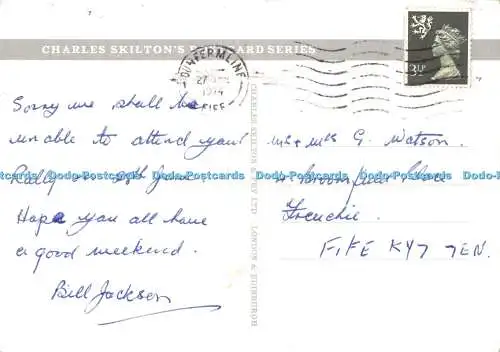 CHARLES SKILTON'S POSTCARD SERIES
DUNFERMLINE
1974
FIFE
3½P
Sorry we shall be
unable to attend your
Rally on 28th June
Hope you all have
a good weekend.
Bill Jackson
CHARLES SKILTON & FRY LTD LONDON & EDINBURGH
Mr & Mrs G. Watson.
Broomfield Place
Freuchie.
FIFE KY7 7EN.
Dodo-Postcards Dodo-Postcards Dodo-Postcards Dodo-Postcards Dodo-Postcards Dodo-Postcards